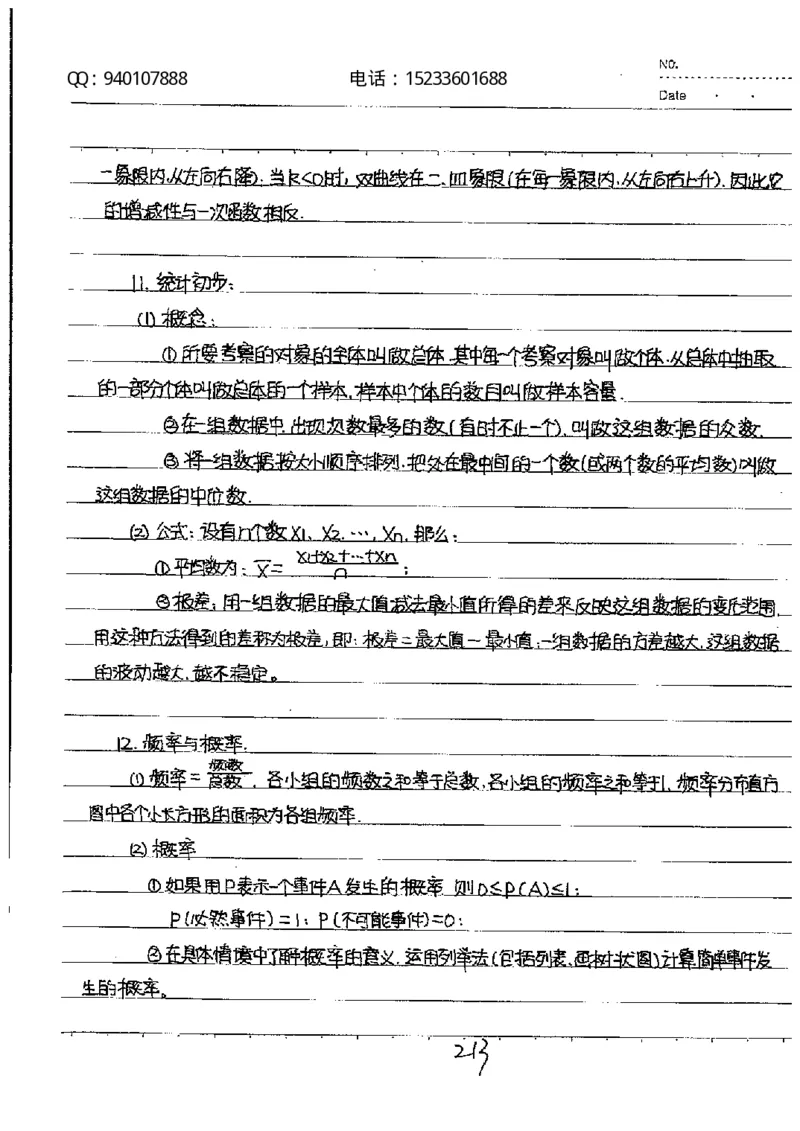 QQ：940107888 电话：15233601688 NO.
Date
一象限内,从左向右降);当k<0时,双曲线在二、四象限(在每一象限内,从左向右上升),因此它
的增减性与一次函数相反.
11. 统计初步:
(1) 概念:
①所要考察的对象的全体叫做总体,其中每一个考察对象叫做个体.从总体中抽取
的一部分个体叫做总体的一个样本,样本中个体的数目叫做样本容量.
②在一组数据中,出现次数最多的数(有时不止一个),叫做这组数据的众数.
③将一组数据按大小顺序排列,把处在最中间的一个数(或两个数的平均数)叫做
这组数据的中位数.
(2) 公式:设有n个数x1、x2.…,xn,那么:
①平均数为: x̄ = (x1+x2+…+xn)/n ;
②极差:用一组数据的最大值减去最小值所得的差来反映这组数据的变化范围,
用这种方法得到的差称为极差,即:极差=最大值-最小值;一组数据的方差越大,这组数据
的波动越大,越不稳定。
12. 频率与概率.
(1) 频率=频数/总数,各小组的频数之和等于总数,各小组的频率之和等于1,频率分布直方
图中各个小长方形的面积为各组频率.
(2) 概率
①如果用P表示一个事件A发生的概率,则0≤P(A)≤1;
P(必然事件)=1; P(不可能事件)=0;
②在具体情境中了解概率的意义,运用列举法(包括列表、画树状图)计算简单事件发
生的概率。
213